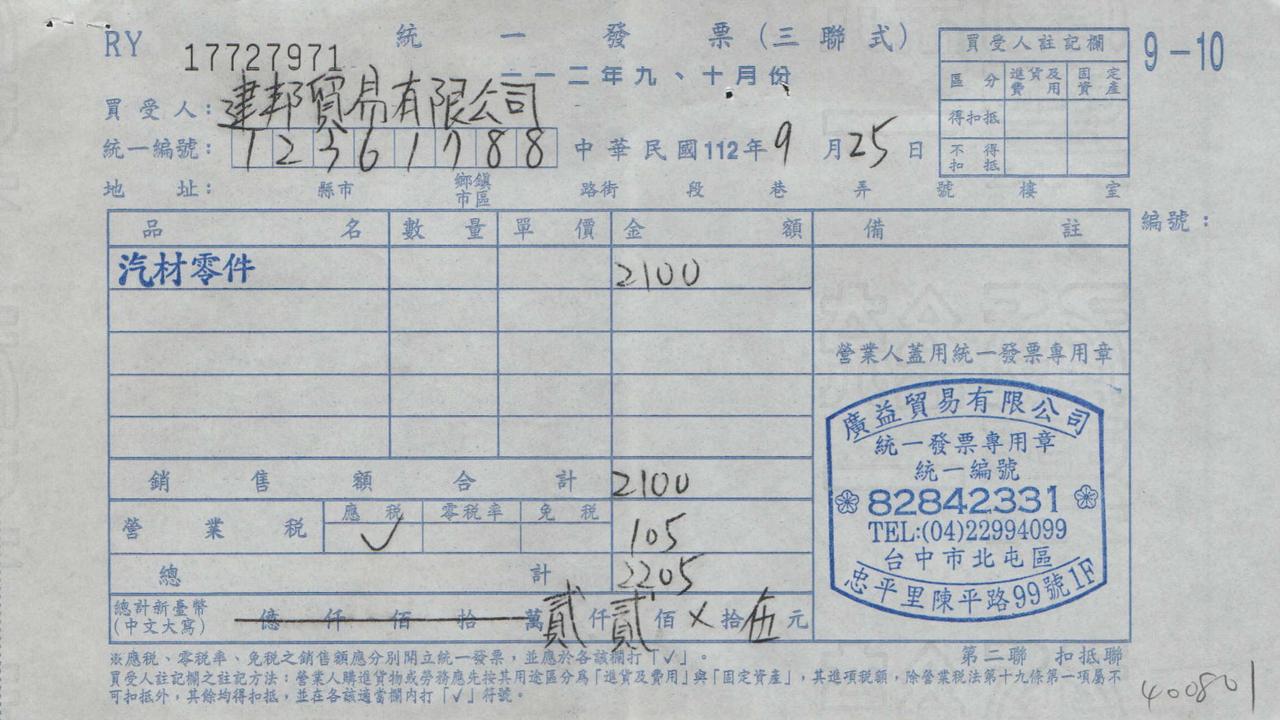 RY 17727971 統一發票(三聯式)
一一二年九、十月份
9-10
買受人註記欄
區分 進貨及費用 固定資產
得扣抵
不得扣抵
買受人:建邦貿易有限公司
統一編號:12361788 中華民國112年9月25日
地址: 縣市 鄉鎮市區 路街 段 巷 弄 號 樓 室
品名 數量 單價 金額 備註 編號:
汽材零件 2100
營業人蓋用統一發票專用章
銷售額合計 2100
營業稅 應稅 零稅率 免稅
✓ 105
總計 2205
總計新臺幣(中文大寫) 億仟佰拾萬貳仟貳佰X拾伍元
廣益貿易有限公司
統一發票專用章
統一編號
82842331
TEL:(04)22994099
台中市北屯區
忠平里陳平路99號1F
※應稅、零稅率、免稅之銷售額應分別開立統一發票,並應於各該欄打「✓」。
第二聯 扣抵聯
買受人註記欄之註記方法:營業人購進貨物或勞務應先按其用途區分為「進貨及費用」與「固定資產」,其進項稅額,除營業稅法第十九條第一項屬不
可扣抵外,其餘均得扣抵,並在各該適當欄內打「✓」符號。
400801